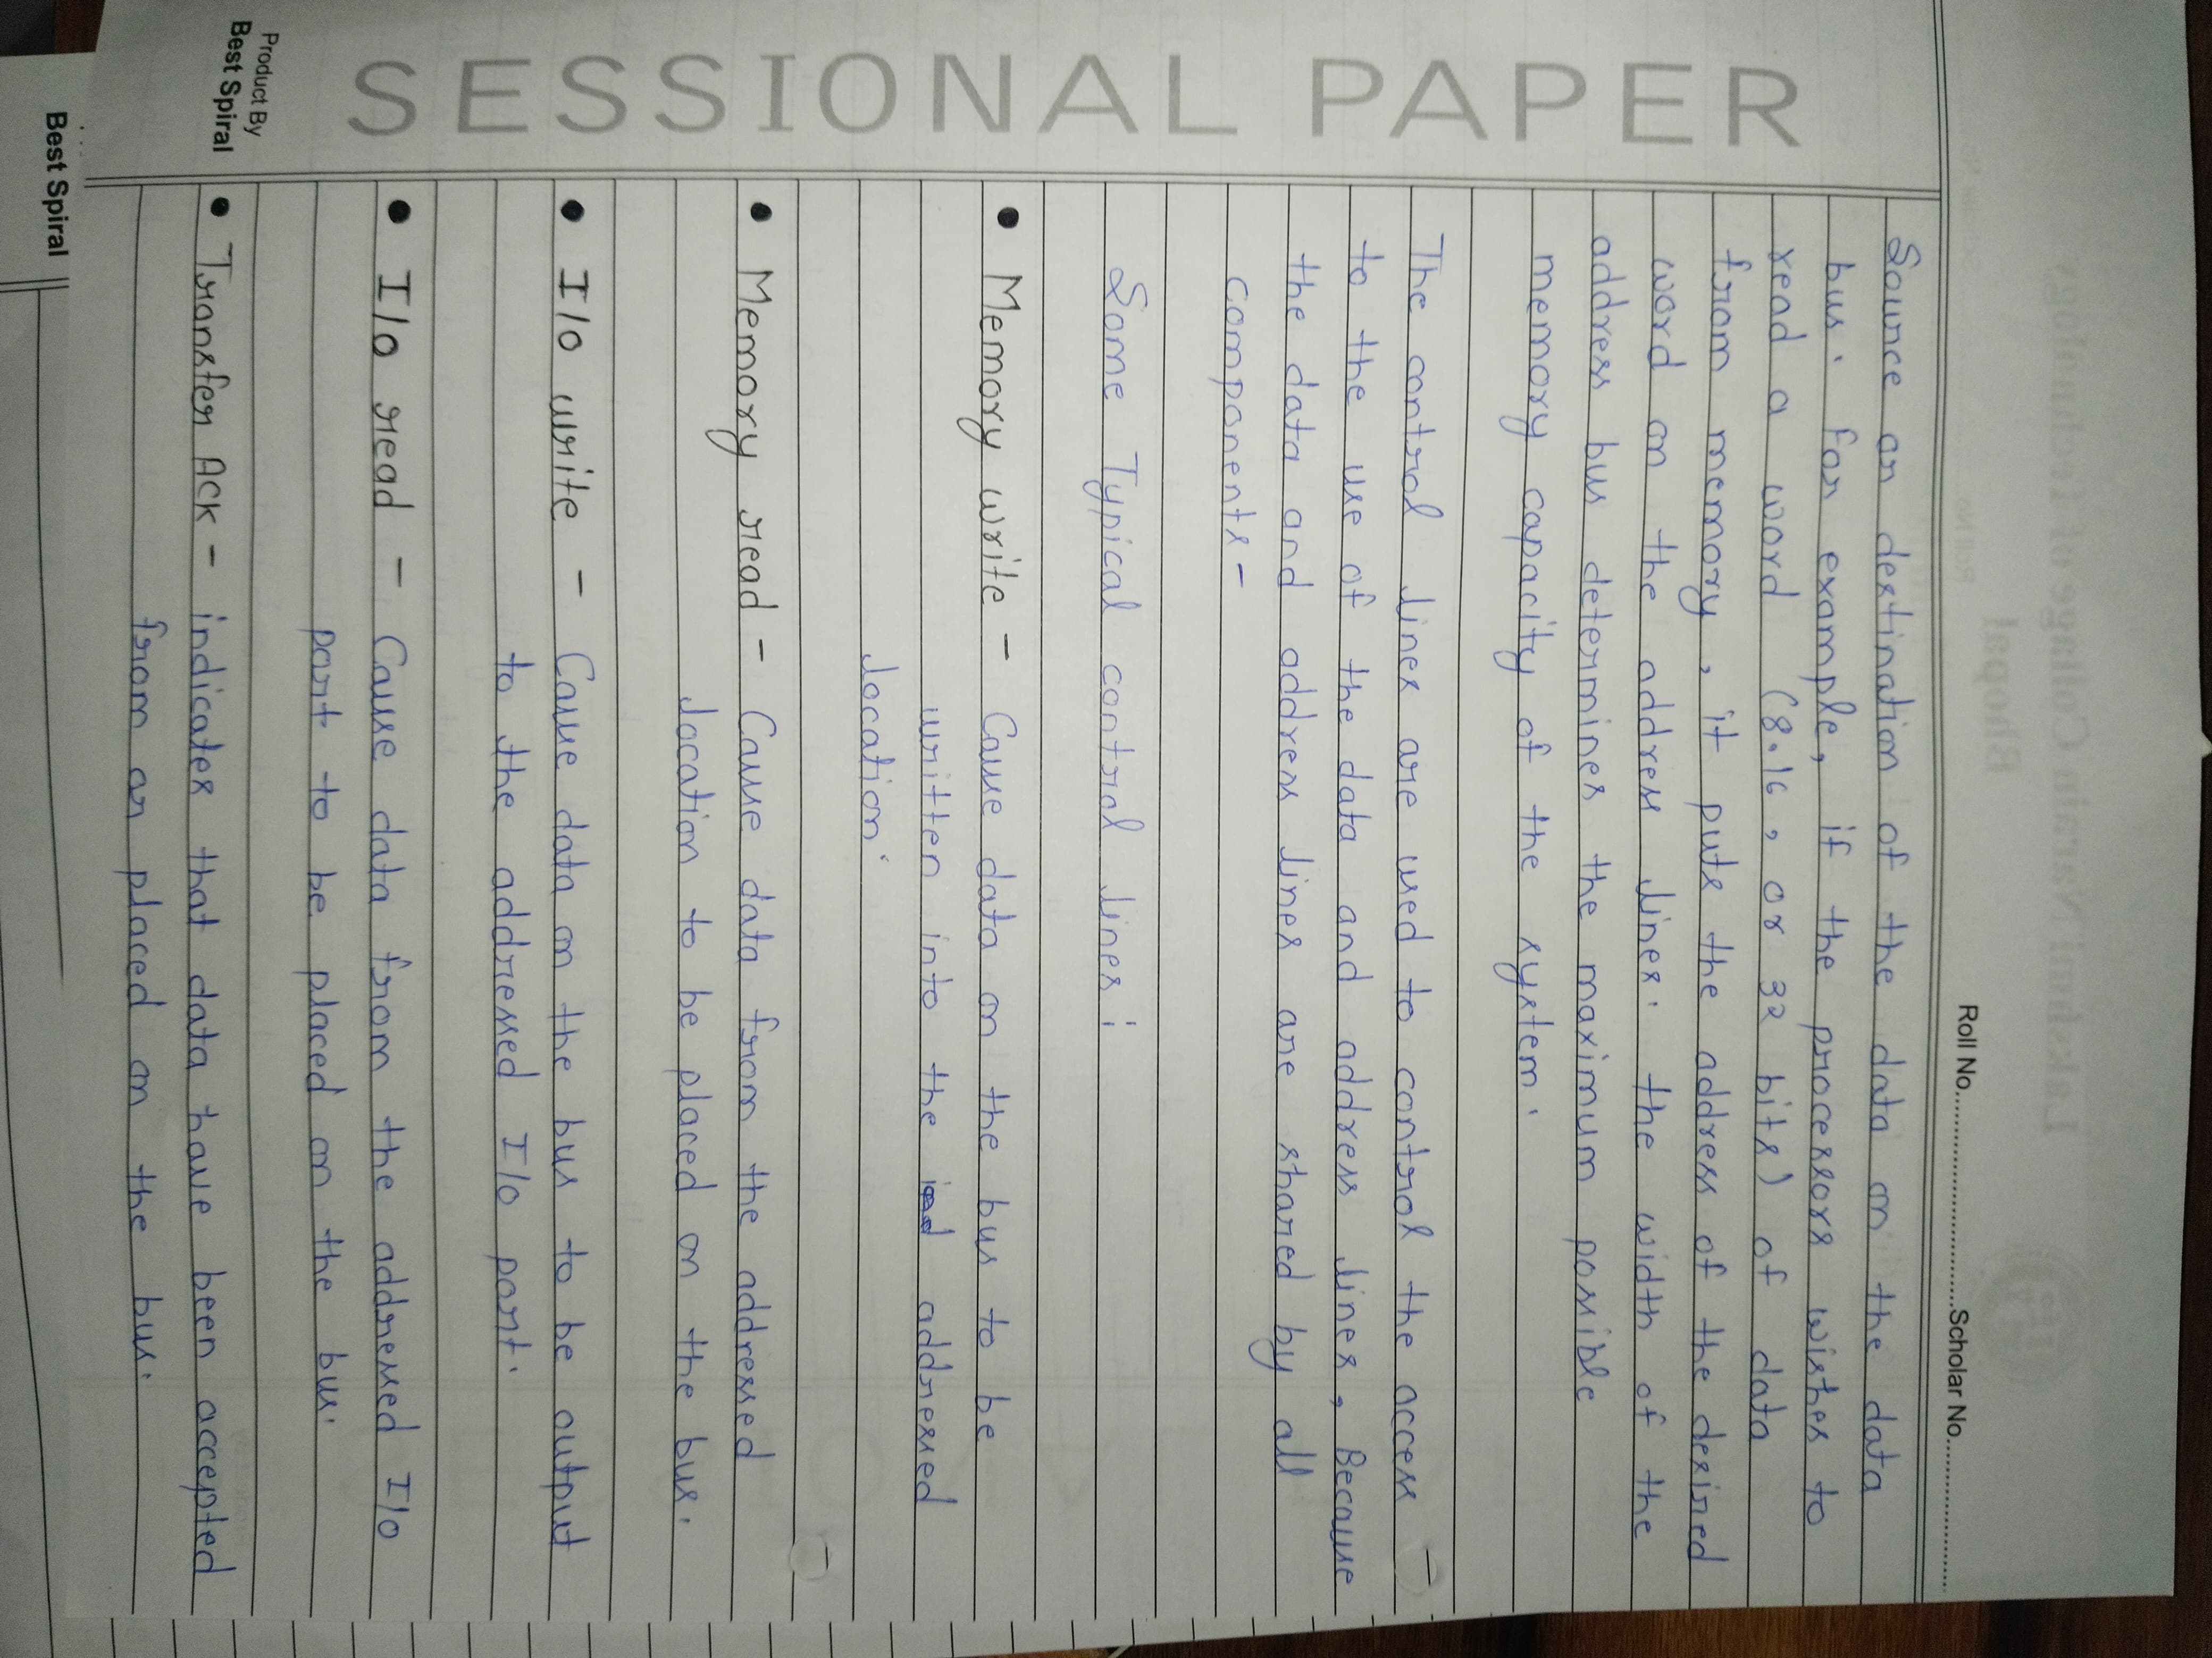 Lakshmi Narain College of Technology
Bhopal
Roll No..............................Scholar No.....................
Source or destination of the data on the data
bus. For example, if the processors wishes to
read a word (8.16, or 32 bits) of data
from memory, it puts the address of the desired
word on the address lines. the width of the
address bus determines the maximum possible
memory capacity of the system.
The control lines are used to control the access
to the use of the data and address lines, Because
the data and address lines are shared by all
components-
Some Typical control lines:
• Memory write - Cause data on the bus to be
written into the addressed
location.
• Memory read - Cause data from the addressed
location to be placed on the bus.
• I/O write - Cause data on the bus to be output
to the addressed I/O port.
• I/O read - Cause data from the addressed I/O
port to be placed on the bus.
• Transfer ACK - indicates that data have been accepted
from or placed on the bus.
SESSIONAL PAPER
Product By
Best Spiral
Best Spiral